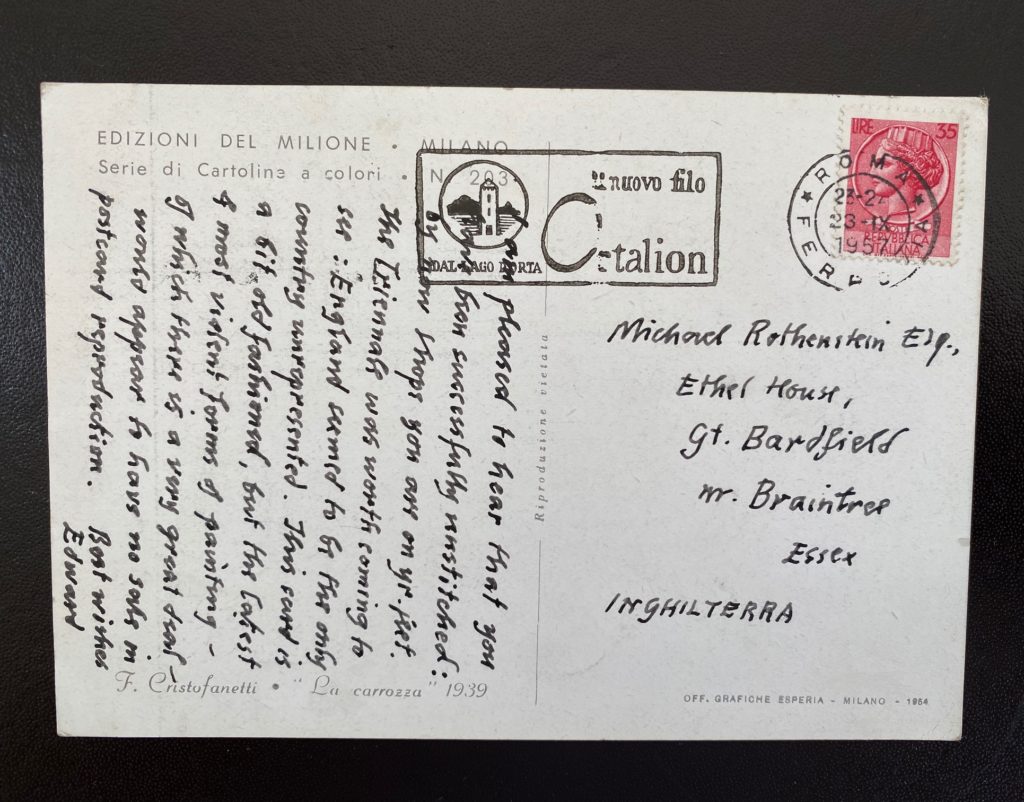 EDIZIONI DEL MILIONE • MILANO
Serie di Cartoline a colori • N. 203
DAL LAGO D'ORTA
il nuovo filo
Cetalion
LIRE 35
REPVBBLICA
ITALIANA
ROMA
FERROVIA
23-IX
1957
I am pleased to hear that you
have been successfully unstitched:
by now I hope you are on yr feet.
The Triennale was worth coming to
see: England seemed to be the only
country unrepresented. This card is
a bit old fashioned, but the latest
& most violent forms of painting –
of which there is a very great deal –
would appear to have no sale in
postcard reproduction. Best wishes
Edward
Riproduzione vietata
Michael Rothenstein Esq.,
Ethel House,
Gt. Bardfield
nr. Braintree
Essex
INGHILTERRA
F. Cristofanetti • "La carrozza" 1939
OFF. GRAFICHE ESPERIA - MILANO - 1954